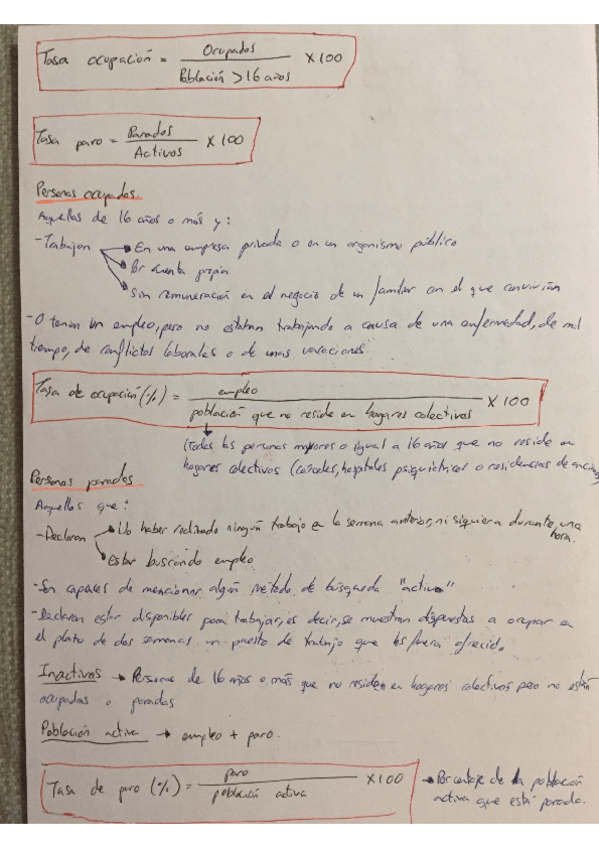 Tasa ocupación = Ocupados / Población > 16 años x 100
Tasa paro = Parados / Activos x 100
Personas ocupadas.
Aquellas de 16 años o más y:
- Trabajan → En una empresa privada o en un organismo público
→ Por cuenta propia
→ Sin remuneración en el negocio de un familiar con el que convivían
- O tenían un empleo, pero no estaban trabajando a causa de una enfermedad, de mal
tiempo, de conflictos laborales o de unas vacaciones.
Tasa de ocupación (%) = empleo / población que no reside en hogares colectivos x 100
(Todas las personas mayores o igual a 16 años que no reside en
hogares colectivos (cárceles, hospitales psiquiátricos o residencias de ancianos
Personas paradas
Aquellos que:
- Declaran → No haber realizado ningún trabajo en la semana anterior, ni siquiera durante una
hora.
→ Estar buscando empleo
- Son capaces de mencionar algún método de búsqueda "activo"
- Declaran estar disponibles para trabajar, es decir, se muestran dispuestos a ocupar en
el plazo de dos semanas un puesto de trabajo que les fuera ofrecido.
Inactivos → Personas de 16 años o más que no residen en hogares colectivos pero no están
ocupadas o paradas
Población activa → empleo + paro.
Tasa de paro (%) = paro / población activa x 100 → Porcentaje de la población
activa que está parada.